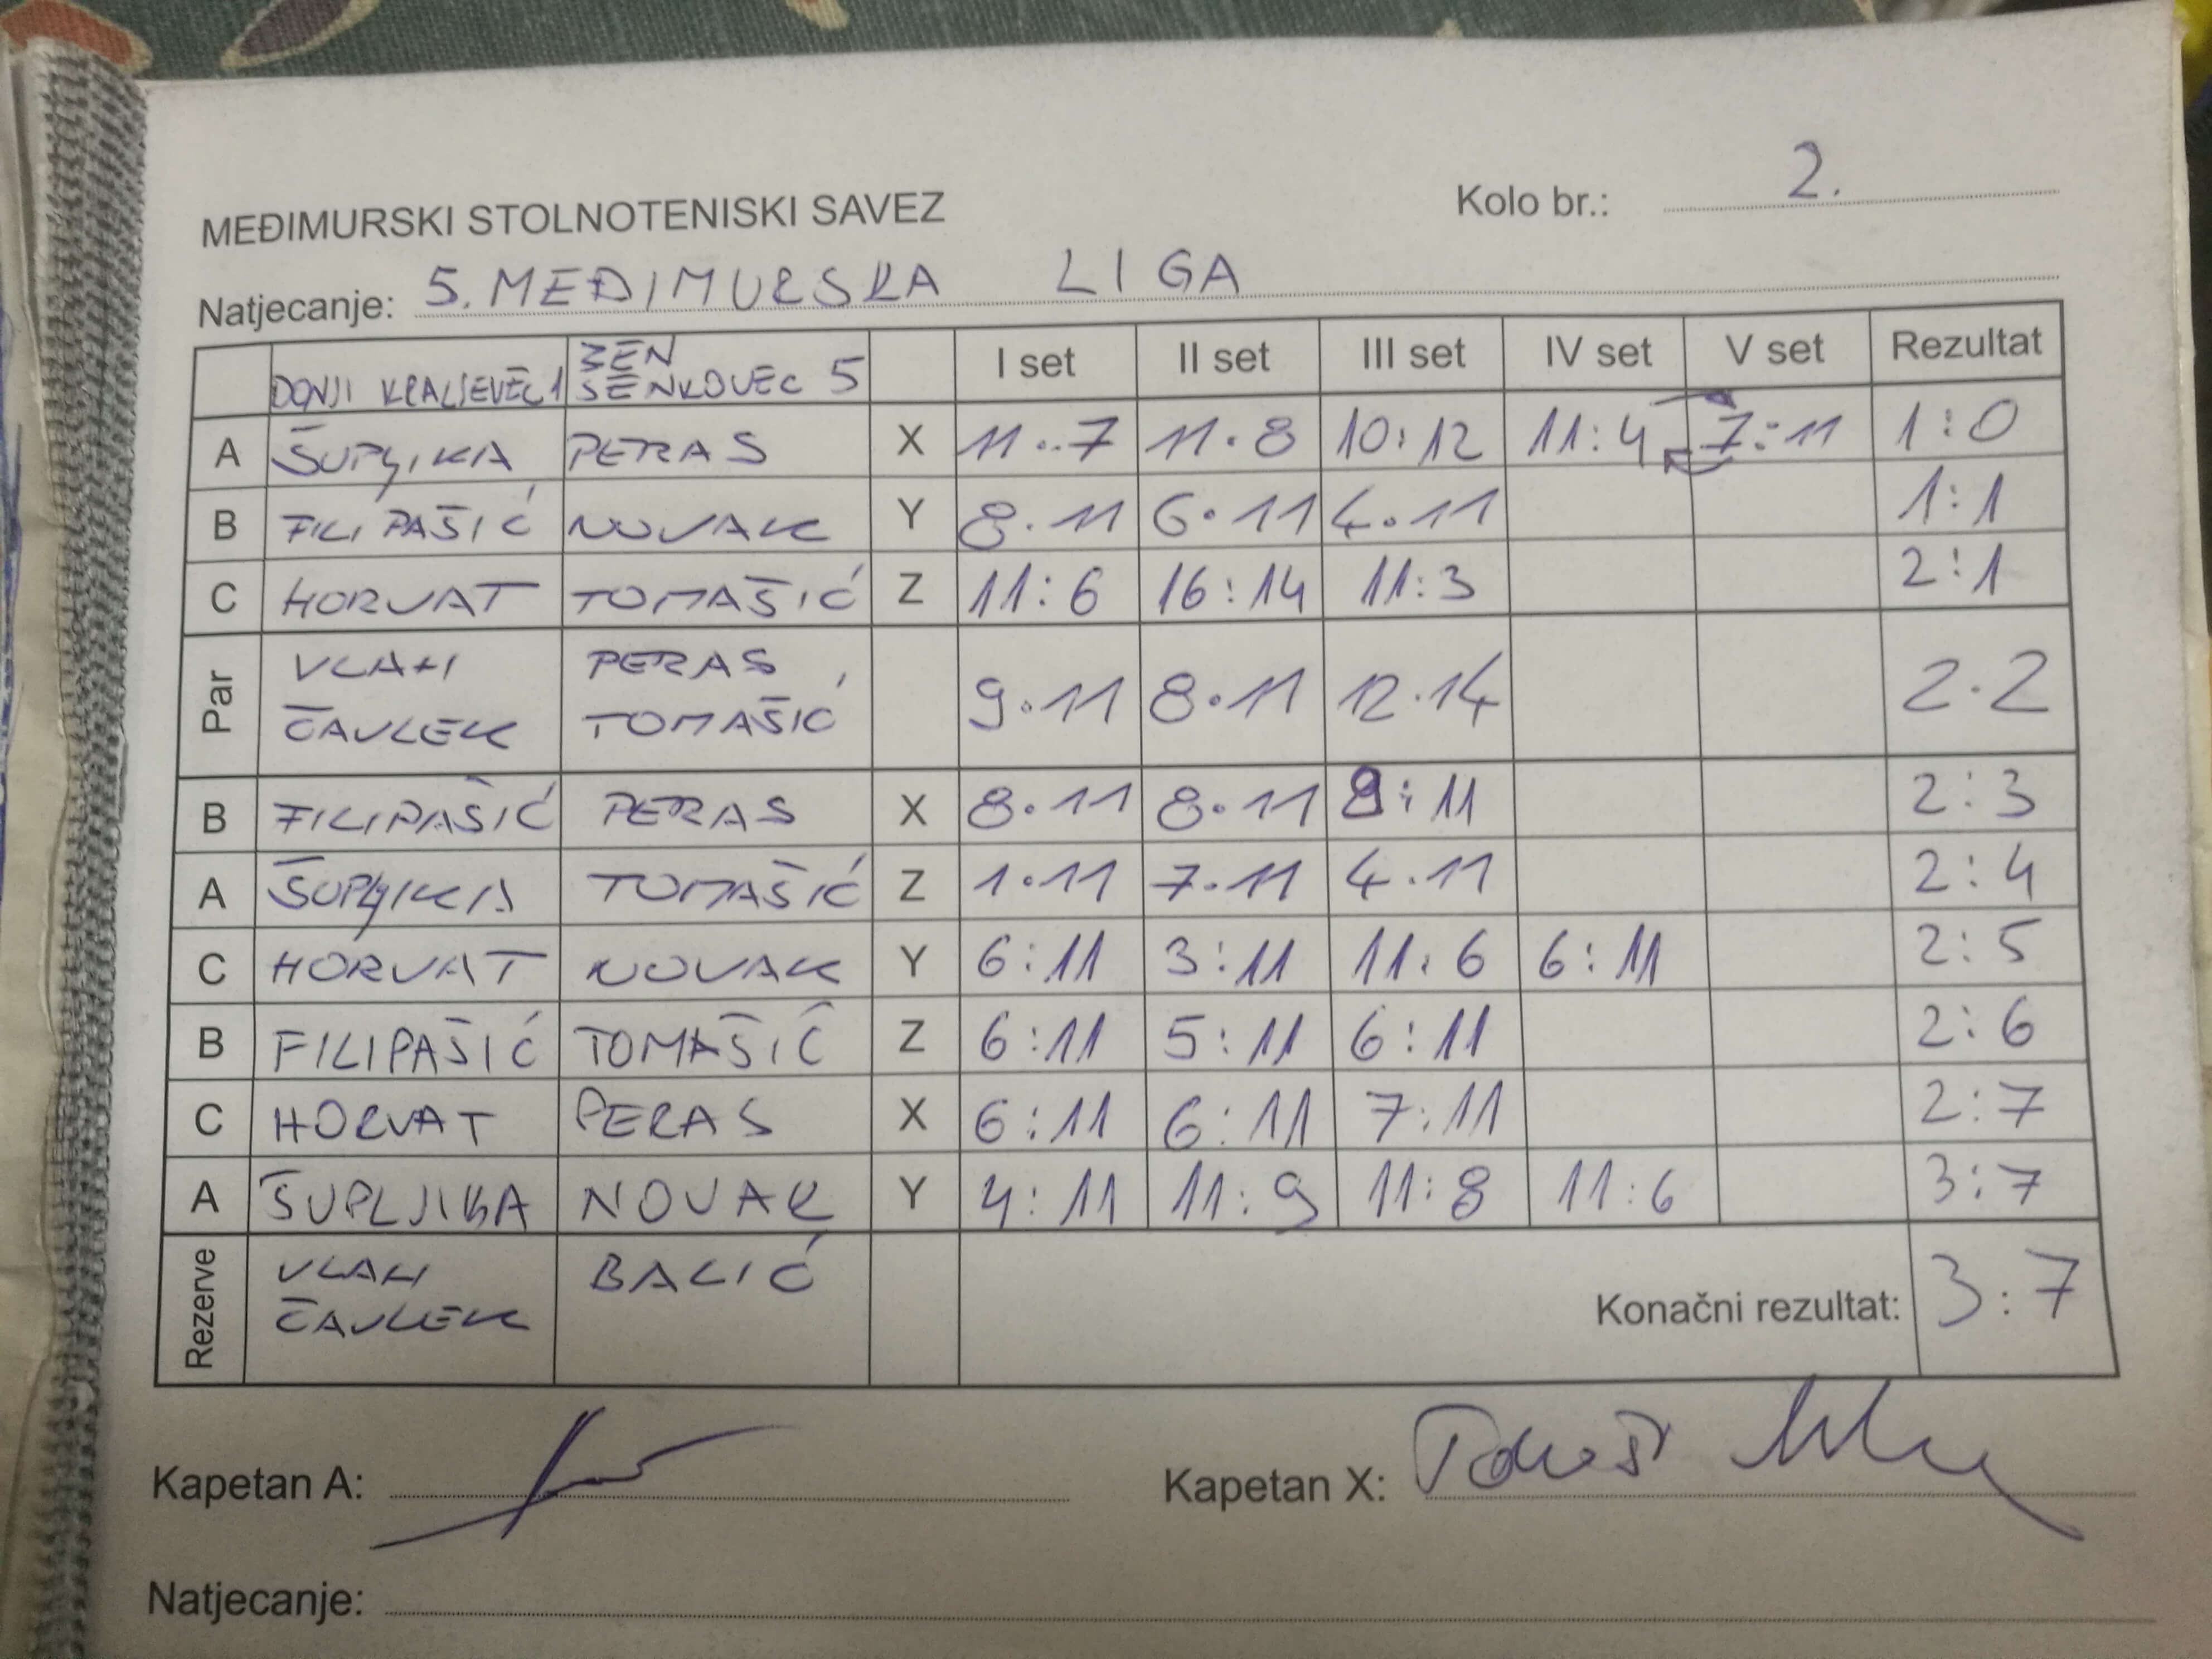 MEĐIMURSKI STOLNOTENISKI SAVEZ Kolo br.: 2.
Natjecanje: 5. MEĐIMURSKA LIGA
DONJI KRALJEVEC 1 ZEN SENKOVEC 5 I set II set III set IV set V set Rezultat
A ŠUPLJIKA PERAS X 11..7 11.8 10:12 11:4 7:11 1:0
B FILIPAŠIĆ NOVAK Y 8.11 6.11 4.11 1:1
C HORVAT TOMAŠIĆ Z 11:6 16:14 11:3 2:1
Par VLAH PERAS 9.11 8.11 12.14 2.2
ČAVLEK TOMAŠIĆ
B FILIPAŠIĆ PERAS X 8.11 8.11 9:11 2:3
A ŠUPLJIKA TOMAŠIĆ Z 1.11 7.11 4.11 2:4
C HORVAT NOVAK Y 6:11 3:11 11:6 6:11 2:5
B FILIPAŠIĆ TOMAŠIĆ Z 6:11 5:11 6:11 2:6
C HORVAT PERAS X 6:11 6:11 7:11 2:7
A ŠUPLJIKA NOVAK Y 4:11 11:9 11:8 11:6 3:7
Rezerve VLAH BALIĆ
ČAVLEK Konačni rezultat: 3:7
Kapetan A: Kapetan X:
Natjecanje: